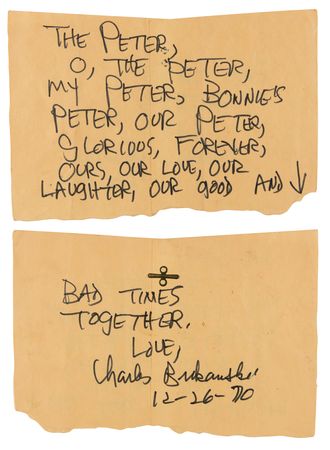 THE PETER,
O, THE PETER,
MY PETER, BONNIE'S
PETER, OUR PETER,
GLORIOUS, FOREVER,
OURS, OUR LOVE, OUR
LAUGHTER, OUR GOOD AND ↓
BAD TIMES
TOGETHER.
LOVE,
Charles Bukowski
12-26-70